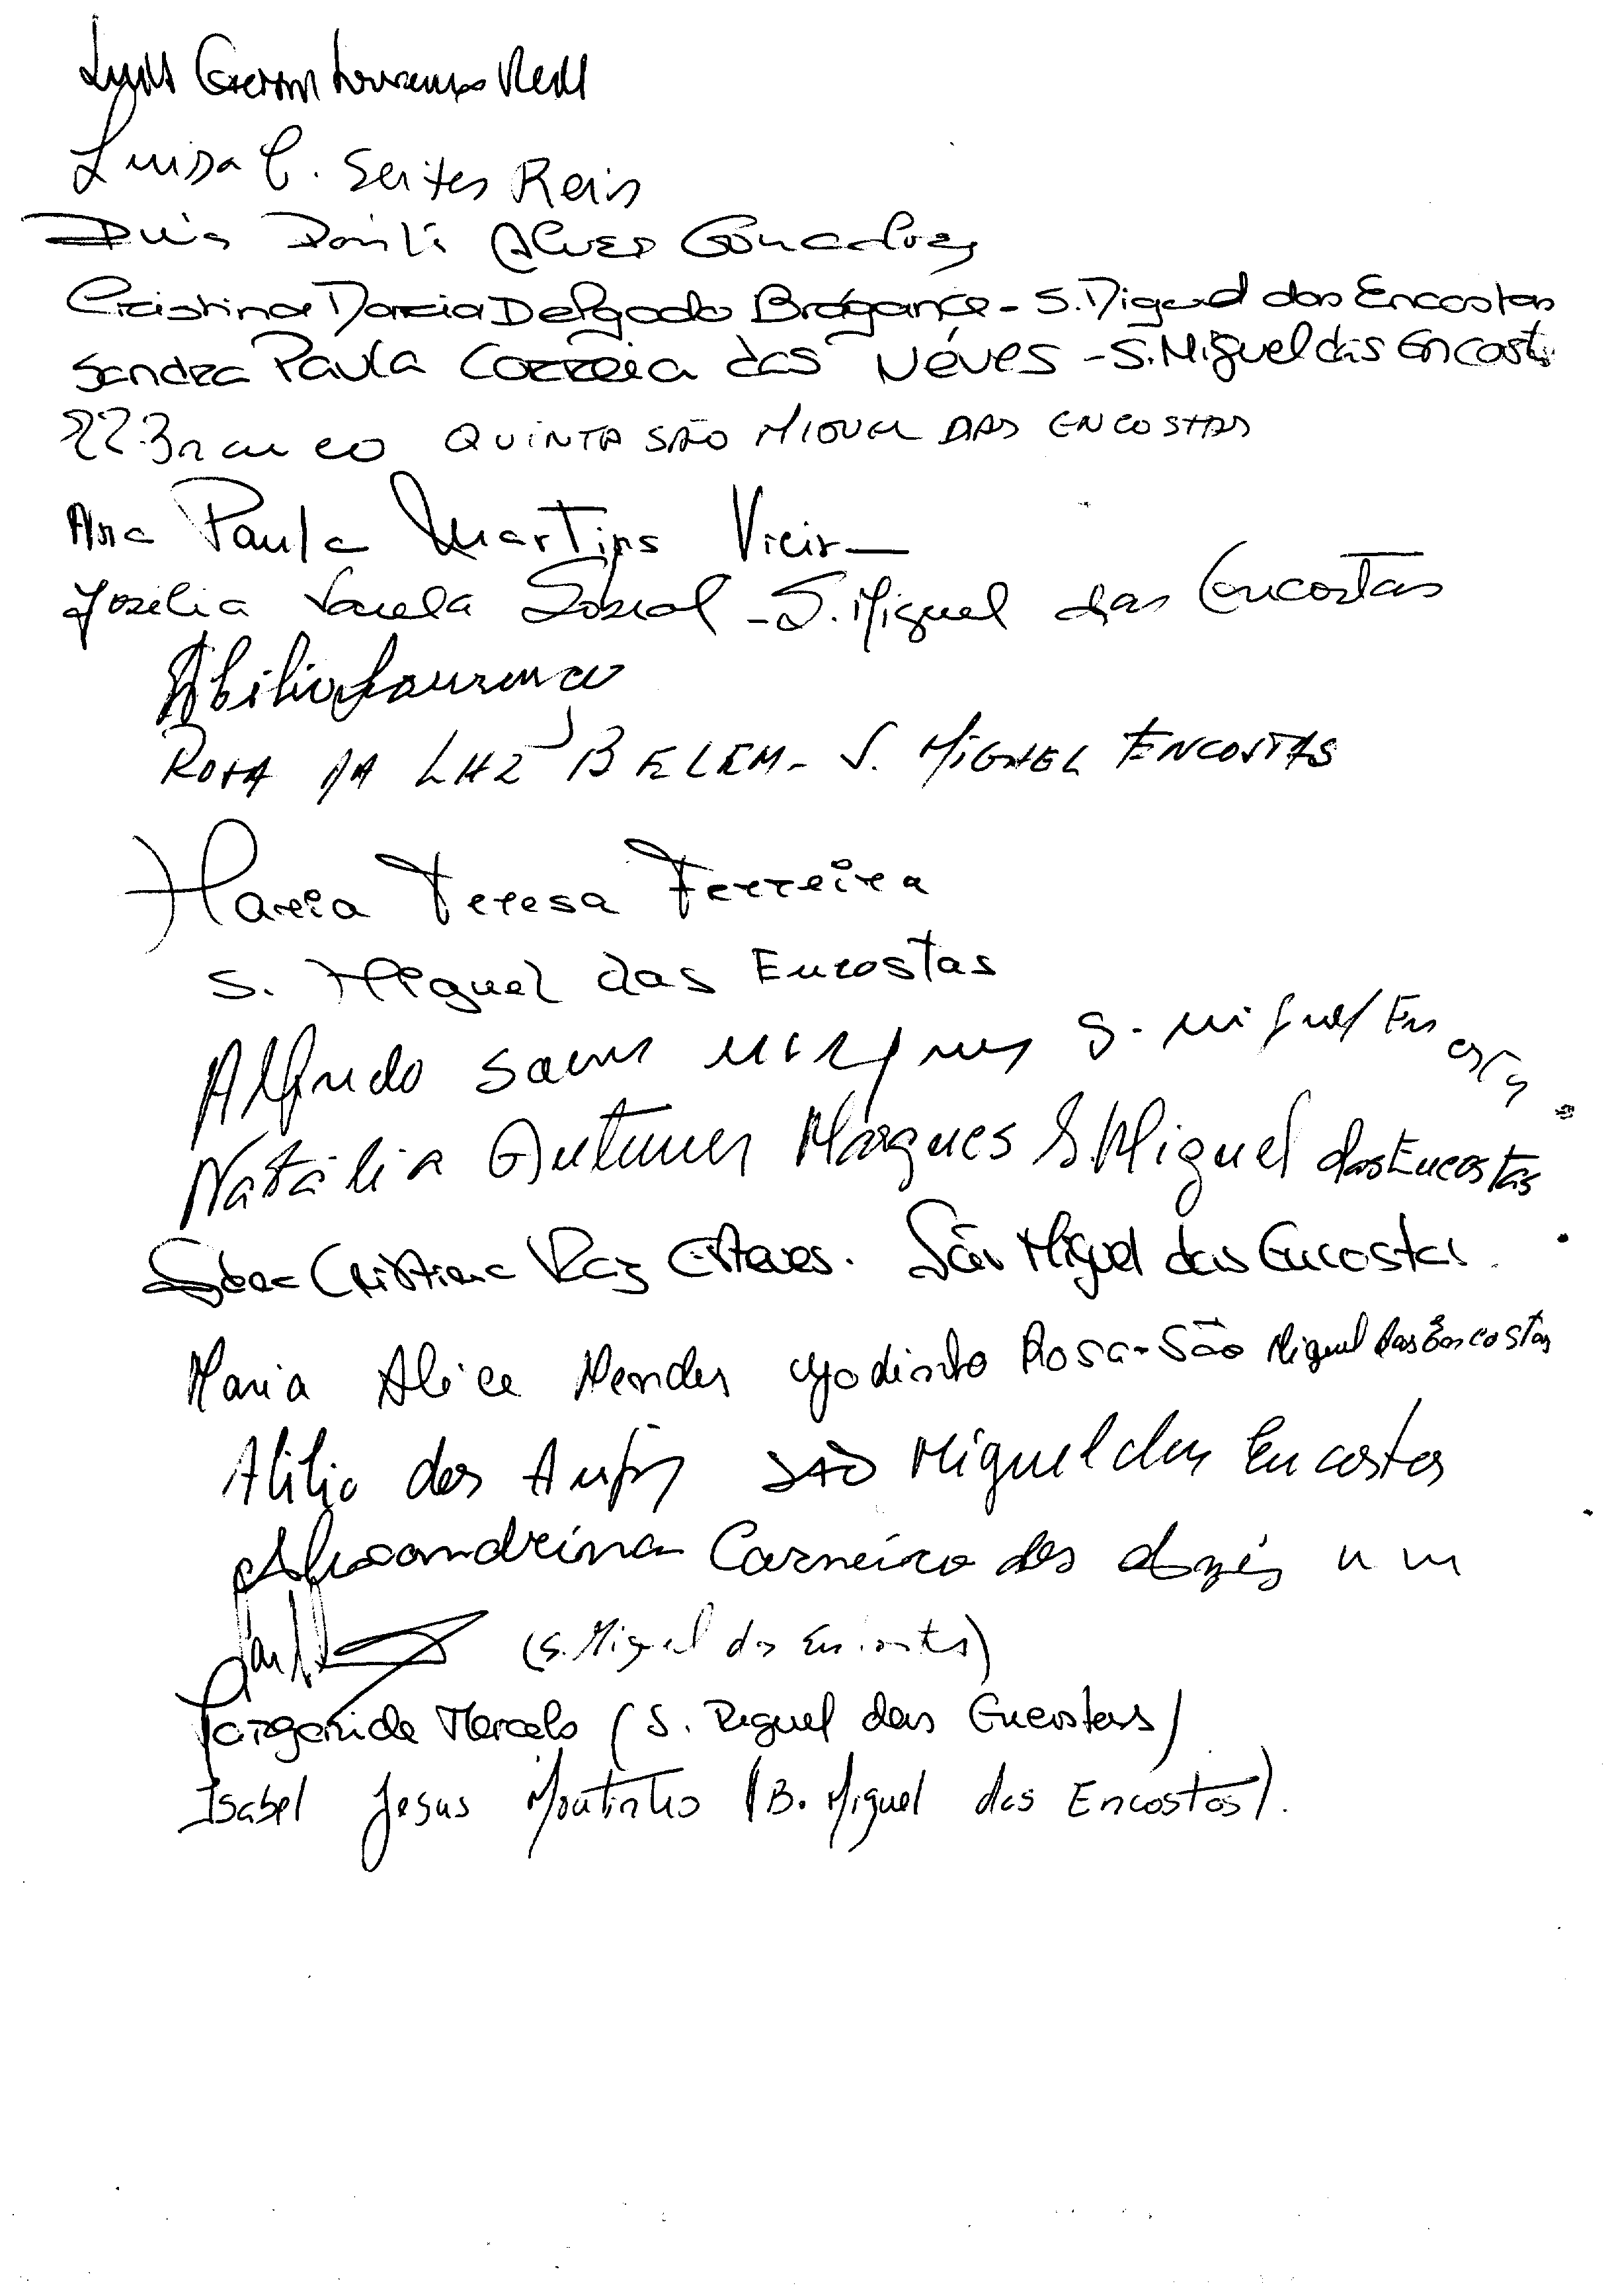 Luisa C. Seites Reis
Alves Goncalves
Cristina Maria Delgado Bragança - S. Miguel das Encostas
Sandra Paula Correia das Néves - S. Miguel das Encost
Branco QUINTA SÃO MIGUEL DAS ENCOSTAS
Ana Paula Martins Vieira
Jozélia Varela Sobral - S. Miguel das Encostas
Abilio Lourenço
ROSA DA LUZ BELEM - S. MIGUEL ENCOSTAS
Maria Teresa Ferreira
S. Miguel das Encostas
Alfredo S. Miguel
Natália Antunes Marques S. Miguel das Encostas
Cristina Vaz Esteves. São Miguel das Encostas.
Maria Alice Mendes Godinho Rosa - São Miguel das Encostas
Atilio dos Anjos SÃO Miguel das Encostas
Alexandrina Carneiro dos Anjos " "
(S. Miguel das Encostas)
Margarida Marcelo (S. Miguel das Encostas)
Isabel Jesus Moutinho (B. Miguel das Encostas).